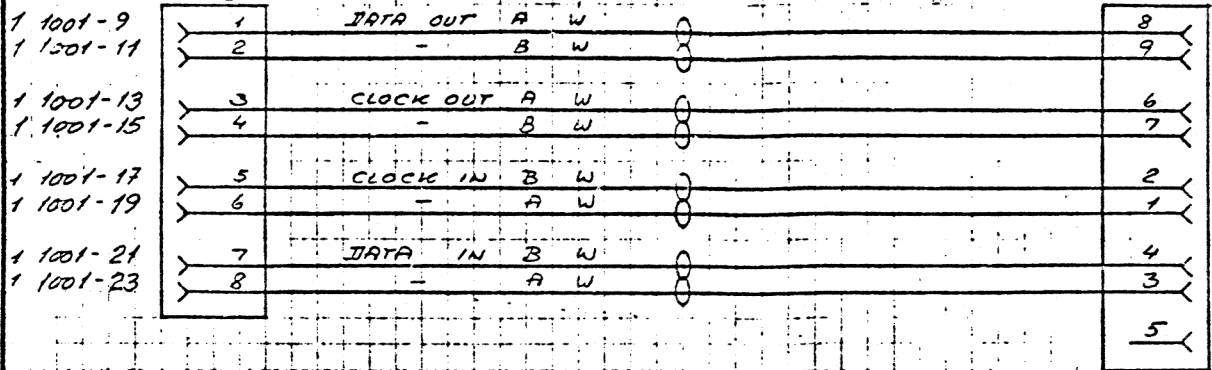 1 1001-9 1 DATA OUT A W 8
1 1001-11 2 - B W 9
1 1001-13 3 CLOCK OUT A W 6
1 1001-15 4 - B W 7
1 1001-17 5 CLOCK IN B W 2
1 1001-19 6 - A W 1
1 1001-21 7 DATA IN B W 4
1 1001-23 8 - A W 3
5